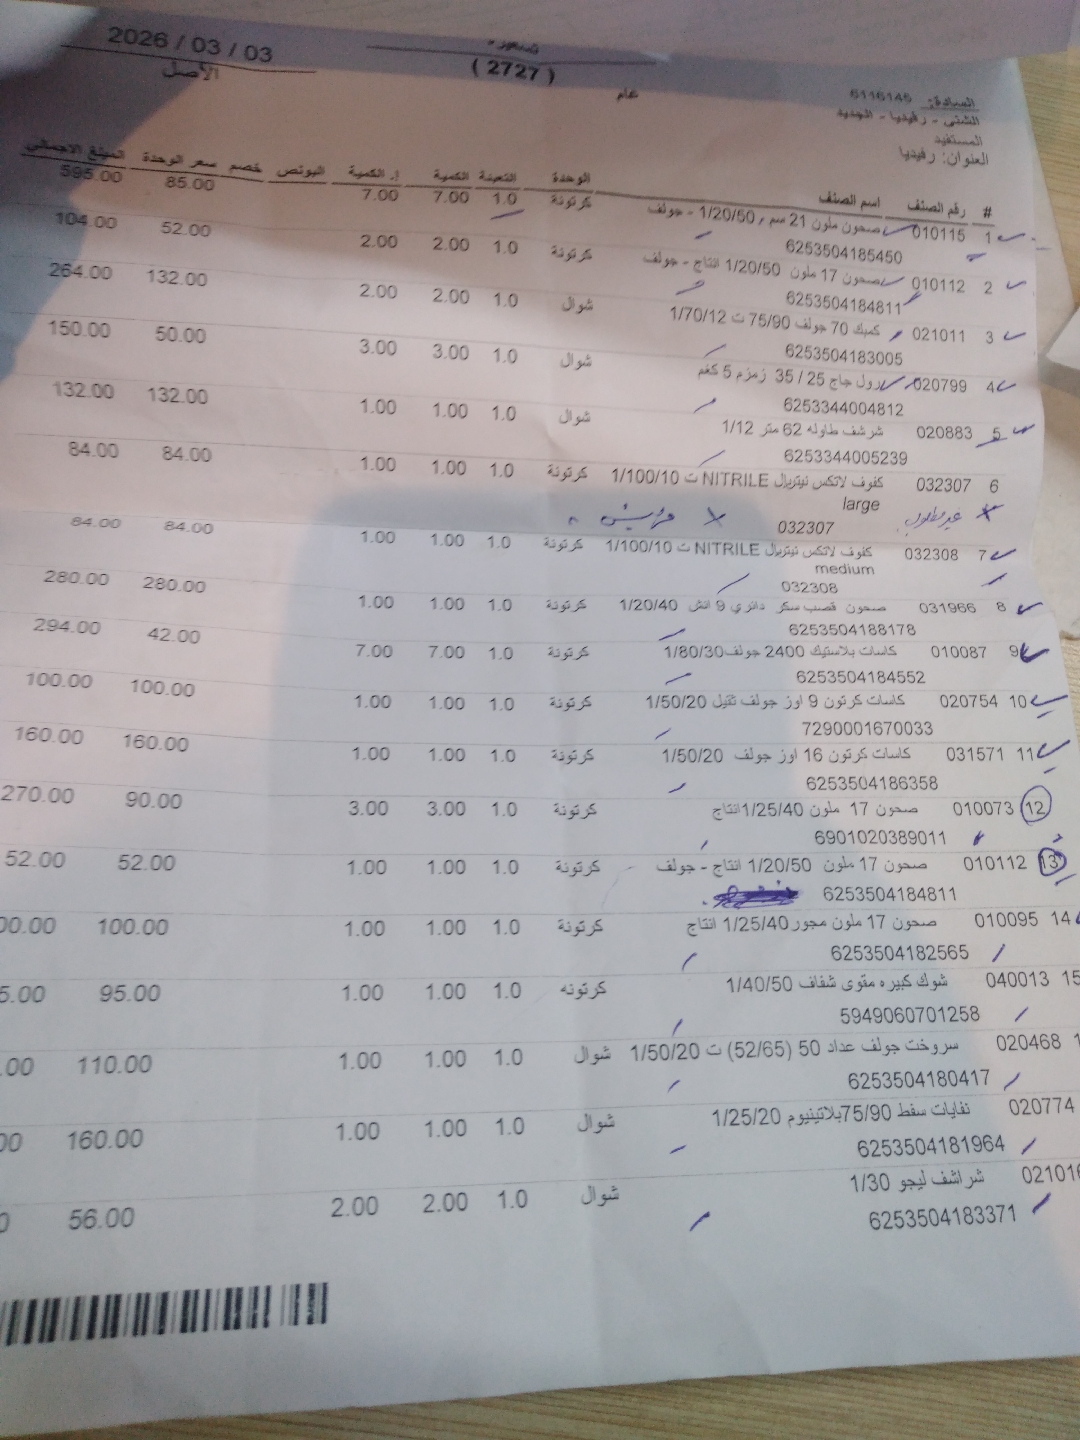 2026 / 03 / 03
الأصل
( 2727 )
عام
السادة: 6116145
الشنى - رفيديا - الجديد
المستفيد
العنوان: رفيديا
# رقم الصنف اسم الصنف الوحدة التعبئة الكمية إ. الكمية البونص خصم سعر الوحدة المبلغ الاجمالي
1 010115 صحون ملون 21 سم 1/20/50 - جولف كرتونة 1.0 7.00 7.00 85.00 595.00
6253504185450
2 010112 صحون 17 ملون 1/20/50 انتاج - جولف كرتونة 1.0 2.00 2.00 52.00 104.00
6253504184811
3 021011 كمبك 70 جولف 75/90 ت 1/70/12 شوال 1.0 2.00 2.00 132.00 264.00
6253504183005
4 020799 رول جاج 25 / 35 زمزم 5 كغم شوال 1.0 3.00 3.00 50.00 150.00
6253344004812
5 020883 شرشف طاوله 62 متر 1/12 شوال 1.0 1.00 1.00 132.00 132.00
6253344005239
6 032307 كفوف لاتكس نيتريال NITRILE ت 1/100/10 كرتونة 1.0 1.00 1.00 84.00 84.00
large
032307
غير مطلوب
7 032308 كفوف لاتكس نيتريال NITRILE ت 1/100/10 كرتونة 1.0 1.00 1.00 84.00 84.00
medium
032308
8 031966 صحون قصب سكر دائري 9 انش 1/20/40 كرتونة 1.0 1.00 1.00 280.00 280.00
6253504188178
9 010087 كاسات بلاستيك 2400 جولف 1/80/30 كرتونة 1.0 7.00 7.00 42.00 294.00
6253504184552
10 020754 كاسات كرتون 9 اوز جولف ثقيل 1/50/20 كرتونة 1.0 1.00 1.00 100.00 100.00
7290001670033
11 031571 كاسات كرتون 16 اوز جولف 1/50/20 كرتونة 1.0 1.00 1.00 160.00 160.00
6253504186358
12 010073 صحون 17 ملون 1/25/40 انتاج كرتونة 1.0 3.00 3.00 90.00 270.00
6901020389011
13 010112 صحون 17 ملون 1/20/50 انتاج - جولف كرتونة 1.0 1.00 1.00 52.00 52.00
6253504184811
14 010095 صحون 17 ملون مجور 1/25/40 انتاج كرتونة 1.0 1.00 1.00 100.00 00.00
6253504182565
15 040013 شوك كبيره مقوى شفاف 1/40/50 كرتونه 1.0 1.00 1.00 95.00 5.00
5949060701258
1 020468 سروخت جولف عداد 50 (52/65) ت 1/50/20 شوال 1.0 1.00 1.00 110.00 .00
6253504180417
020774 نفايات سفط 75/90 بلاتينيوم 1/25/20 شوال 1.0 1.00 1.00 160.00 00
6253504181964
021016 شراشف ليجو 1/30 شوال 1.0 2.00 2.00 56.00 0
6253504183371